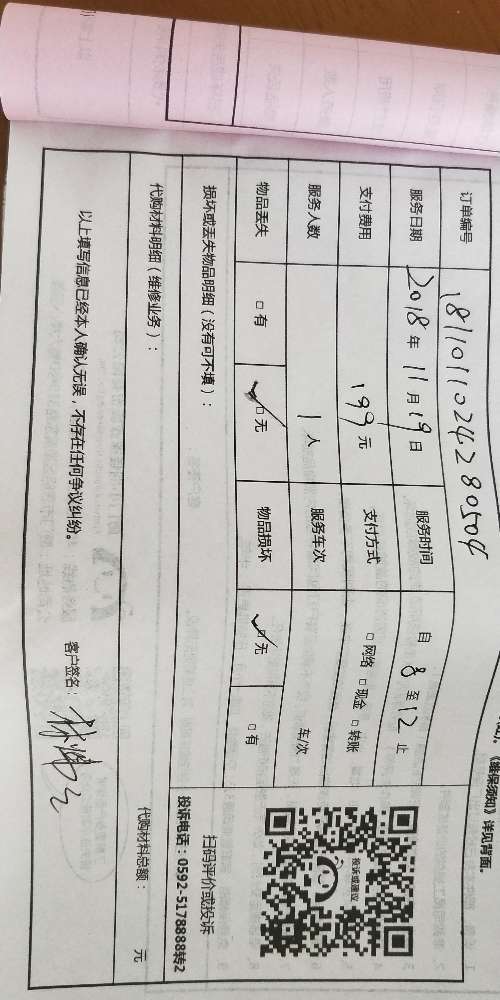 《维保须知》详见背面。
订单编号 181101102428050
服务日期 2018年11月19日 服务时间 自 8 至 12 止
支付费用 199元 支付方式 □网络 □现金 □转账
服务人数 1人 服务车次 车/次
物品丢失 □有 ✓□无 物品损坏 ✓□无 □有
投诉或建议
扫码评价或投诉
投诉电话：0592-5178888转2
损坏或丢失物品明细（没有可不填）：
代购材料明细（维修业务）： 代购材料总额： 元
以上填写信息已经本人确认无误，不存在任何争议纠纷。 客户签名：